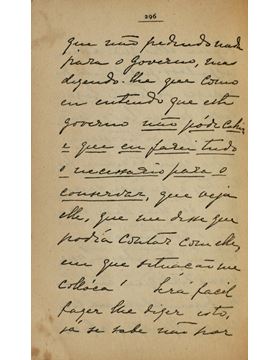 296
que não pedindo nada
para o Governo, me
dizendo-lhe que como
eu entendo que este
governo não póde cahir
e que eu farei tudo
o necessario para o
conservar, que veja
elle, que me disse que
podia contar com elle,
em que situação me
collóca! Será facil
fazer lhe dizer isto,
já se sabe não por